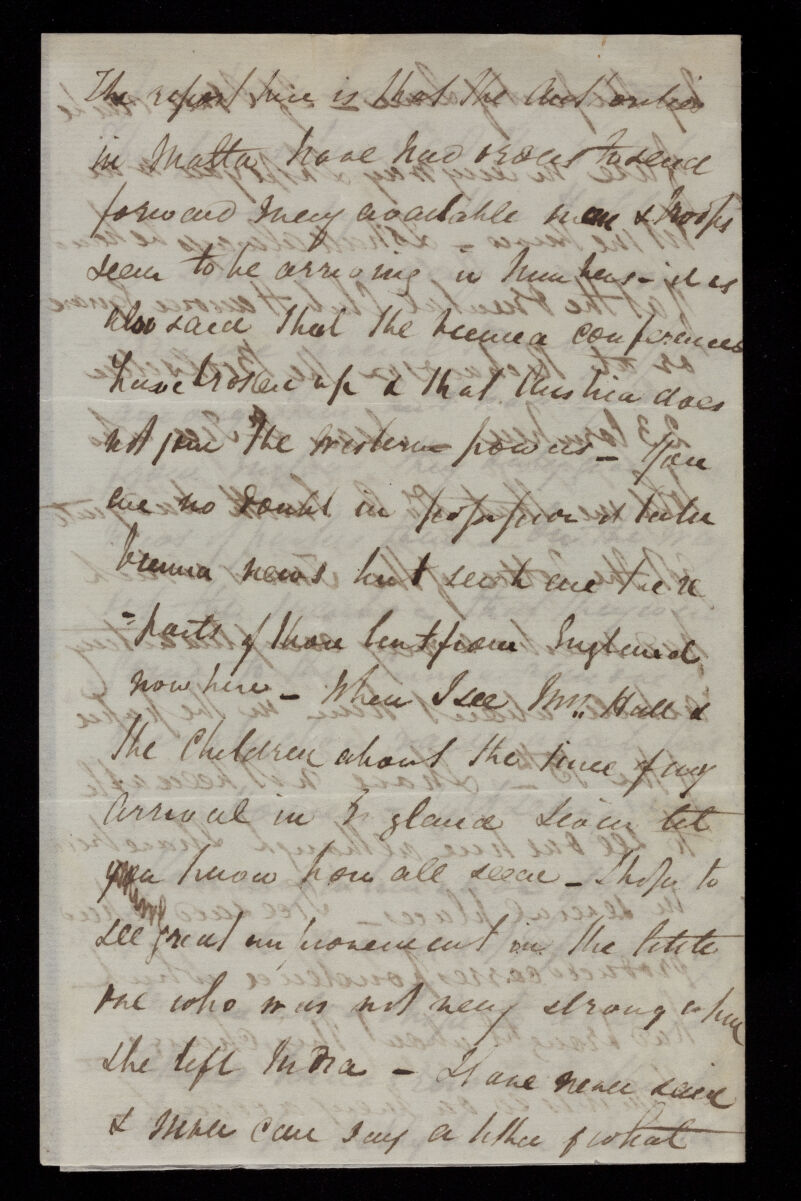 The report here is that the Authorities
in Malta have had orders to send
forward every available man & troops
seem to be arriving in numbers - it is
also said that the Vienna conferences
have broken up & that Austria does
not join the Western powers - You
are no doubt in possession of later
Vienna news but such are the re
-ports of those sent from England
now here - When I see Mrs. Hall &
the Children about the time of my
arrival in England I will let
you know how all seem - I hope to
see great improvement in the little
one who was not very strong when
she left India - I have never said
& never can say a tithe of what